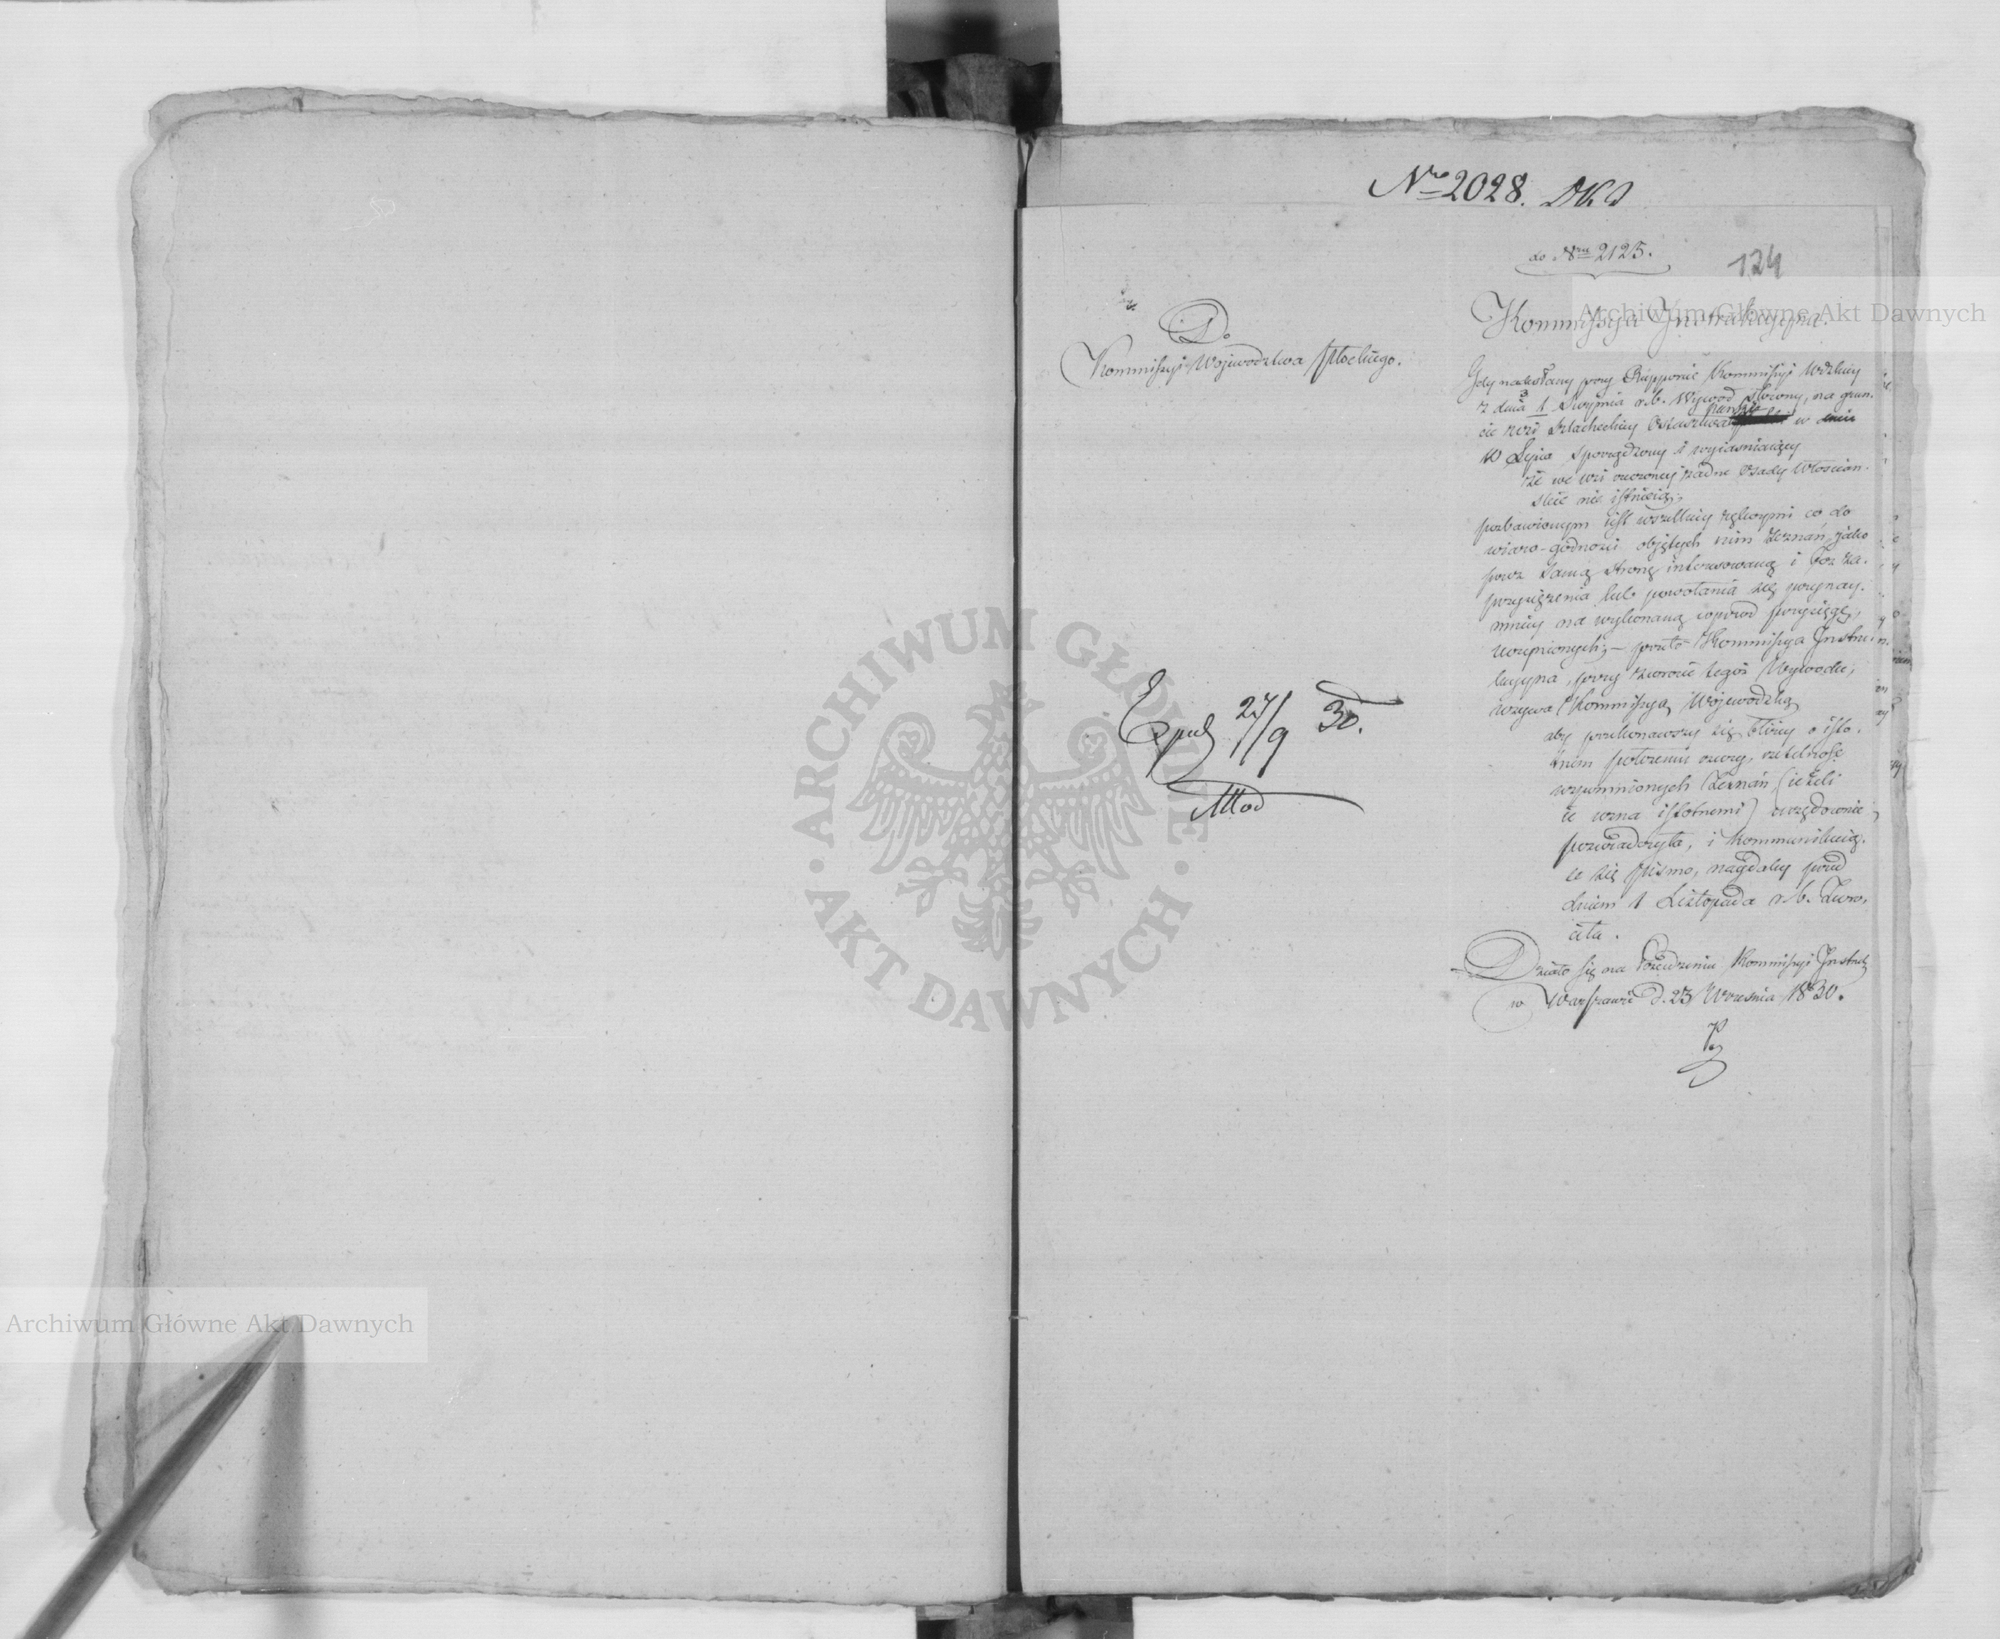 Nro 2028.
do Nru 2125.
124
Kommissya Instrukcyina.
Do
Kommissyi Wojewodztwa Płockiego.
Gdy nadesłany przy Rapporcie Kommissyi Wdzkiey
z dnia 1 Sierpnia r.b. Wywod Słowny, na grun-
cie wsi Szlacheckiey w dniu
10 Lipca sporządzony i wyiasniaiący
że we wsi rzeczoney żadne Osady Włościań-
skie nie istnieią;
pozbawionym iest wszelkiey rękoymi co do
wiaro-godności objętych nim Zeznań, jako
przez samą stronę interesowaną i bez za-
przysiężenia lub powołania się przynay-
mniey na wykonaną wprzód przysięgę,
uczynionych; – przeto Kommissya Instru-
kcyina, przy zwrocie tegoż Wywodu,
wzywa Kommissyą Wojewodzką
aby przekonawszy się bliżey o isto-
tnem położeniu rzeczy, rzetelność
wspomnionych Zeznań (ieżeli
ie uzna istotnemi) urzędownie
poświadczyła, i kommunikuią-
ce się pismo, naydaley przed
dniem 1 Listopada r.b. Zwró-
ciła.
Działo się na Posiedzeniu Kommissyi Instruk
w Warszawie d. 23 Września 1830.
Exped 27/9 30.
Archiwum Główne Akt Dawnych
Archiwum Główne Akt Dawnych
ARCHIWUM GŁÓWNE · AKT DAWNYCH ·